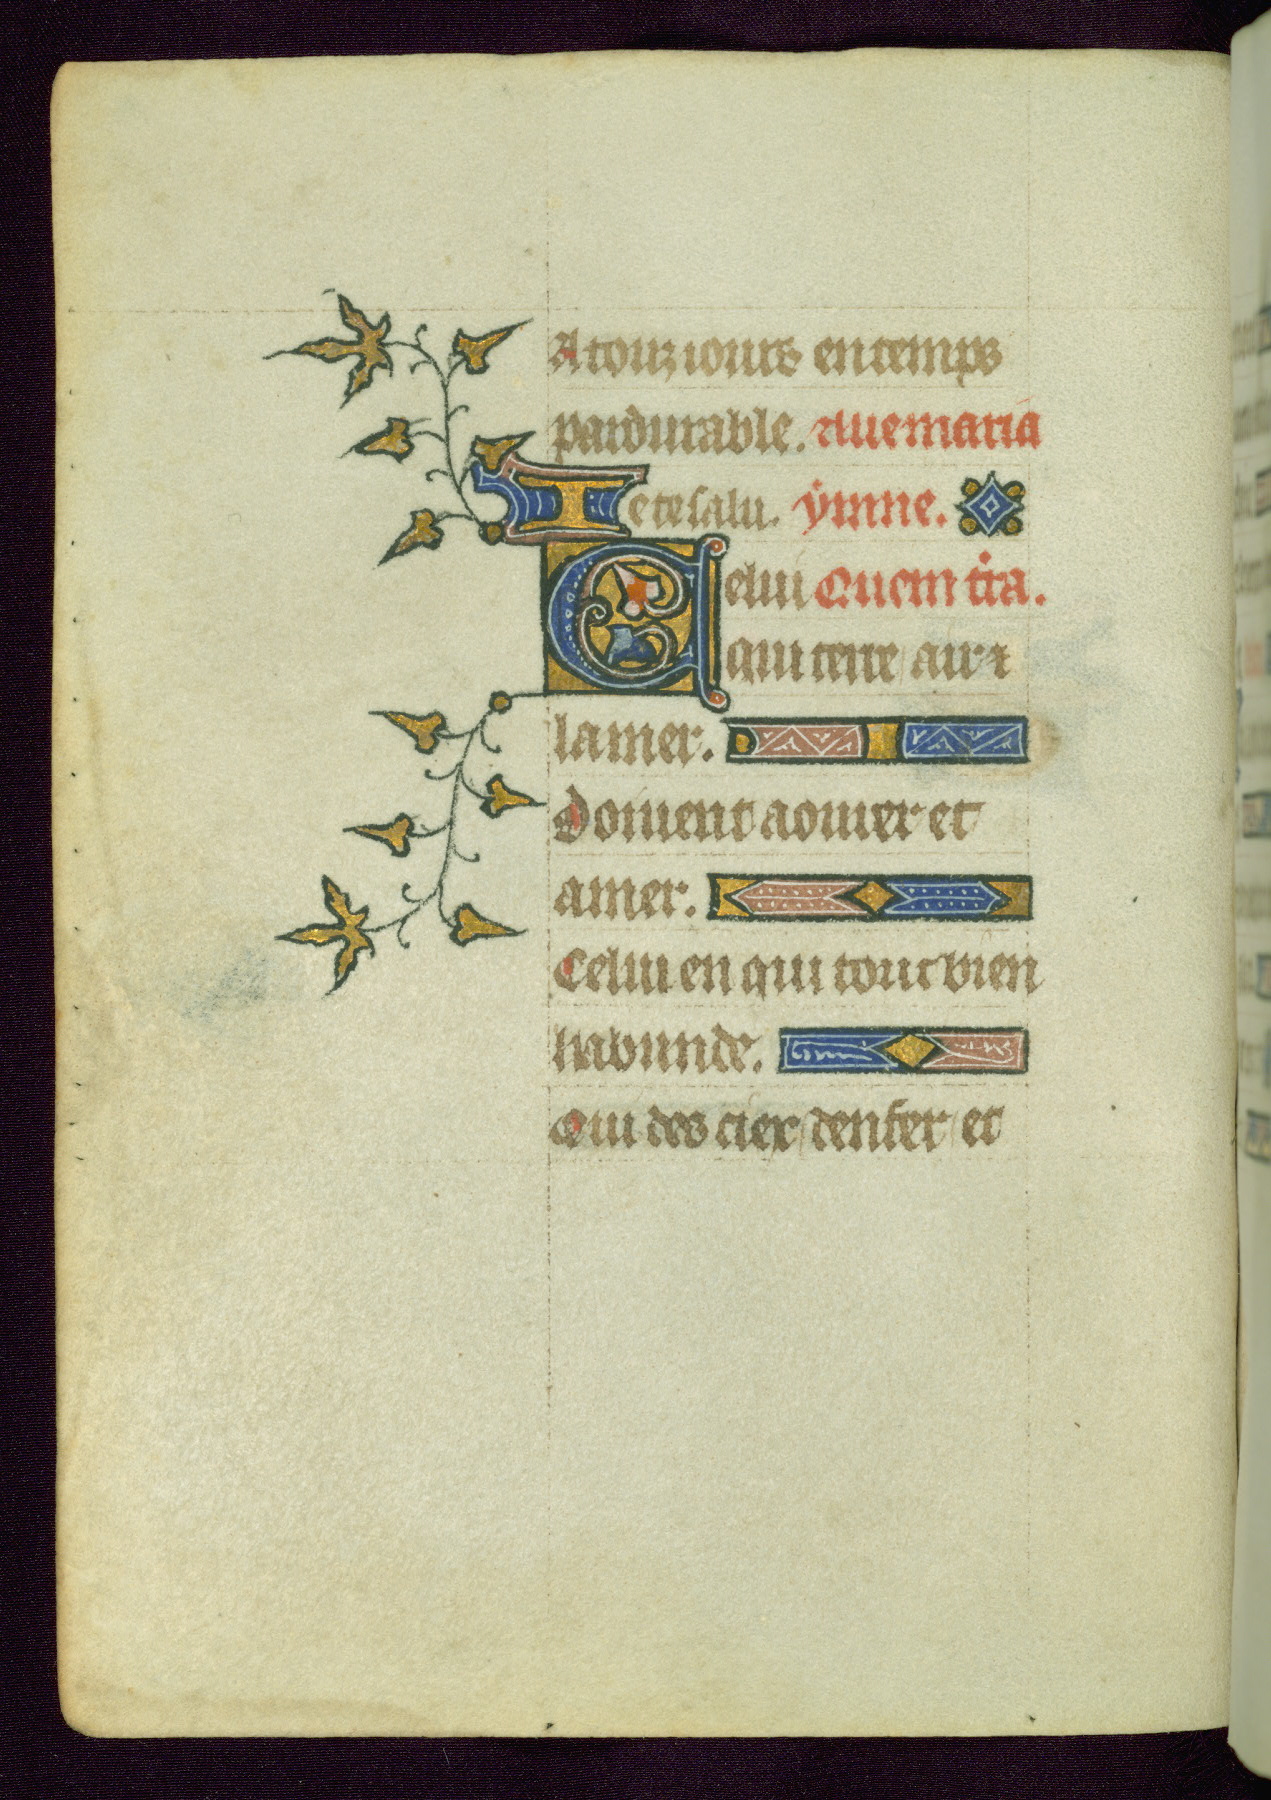 A touz iours en temps
pardurable. Aue maria
Ie te salu. ymne.
Celui Quem t̄ra.
qui terre air ⁊
la mer.
Doiuent aourer et
amer.
Celui en qui tout bien
habunde.
Qui des ciex denfer et